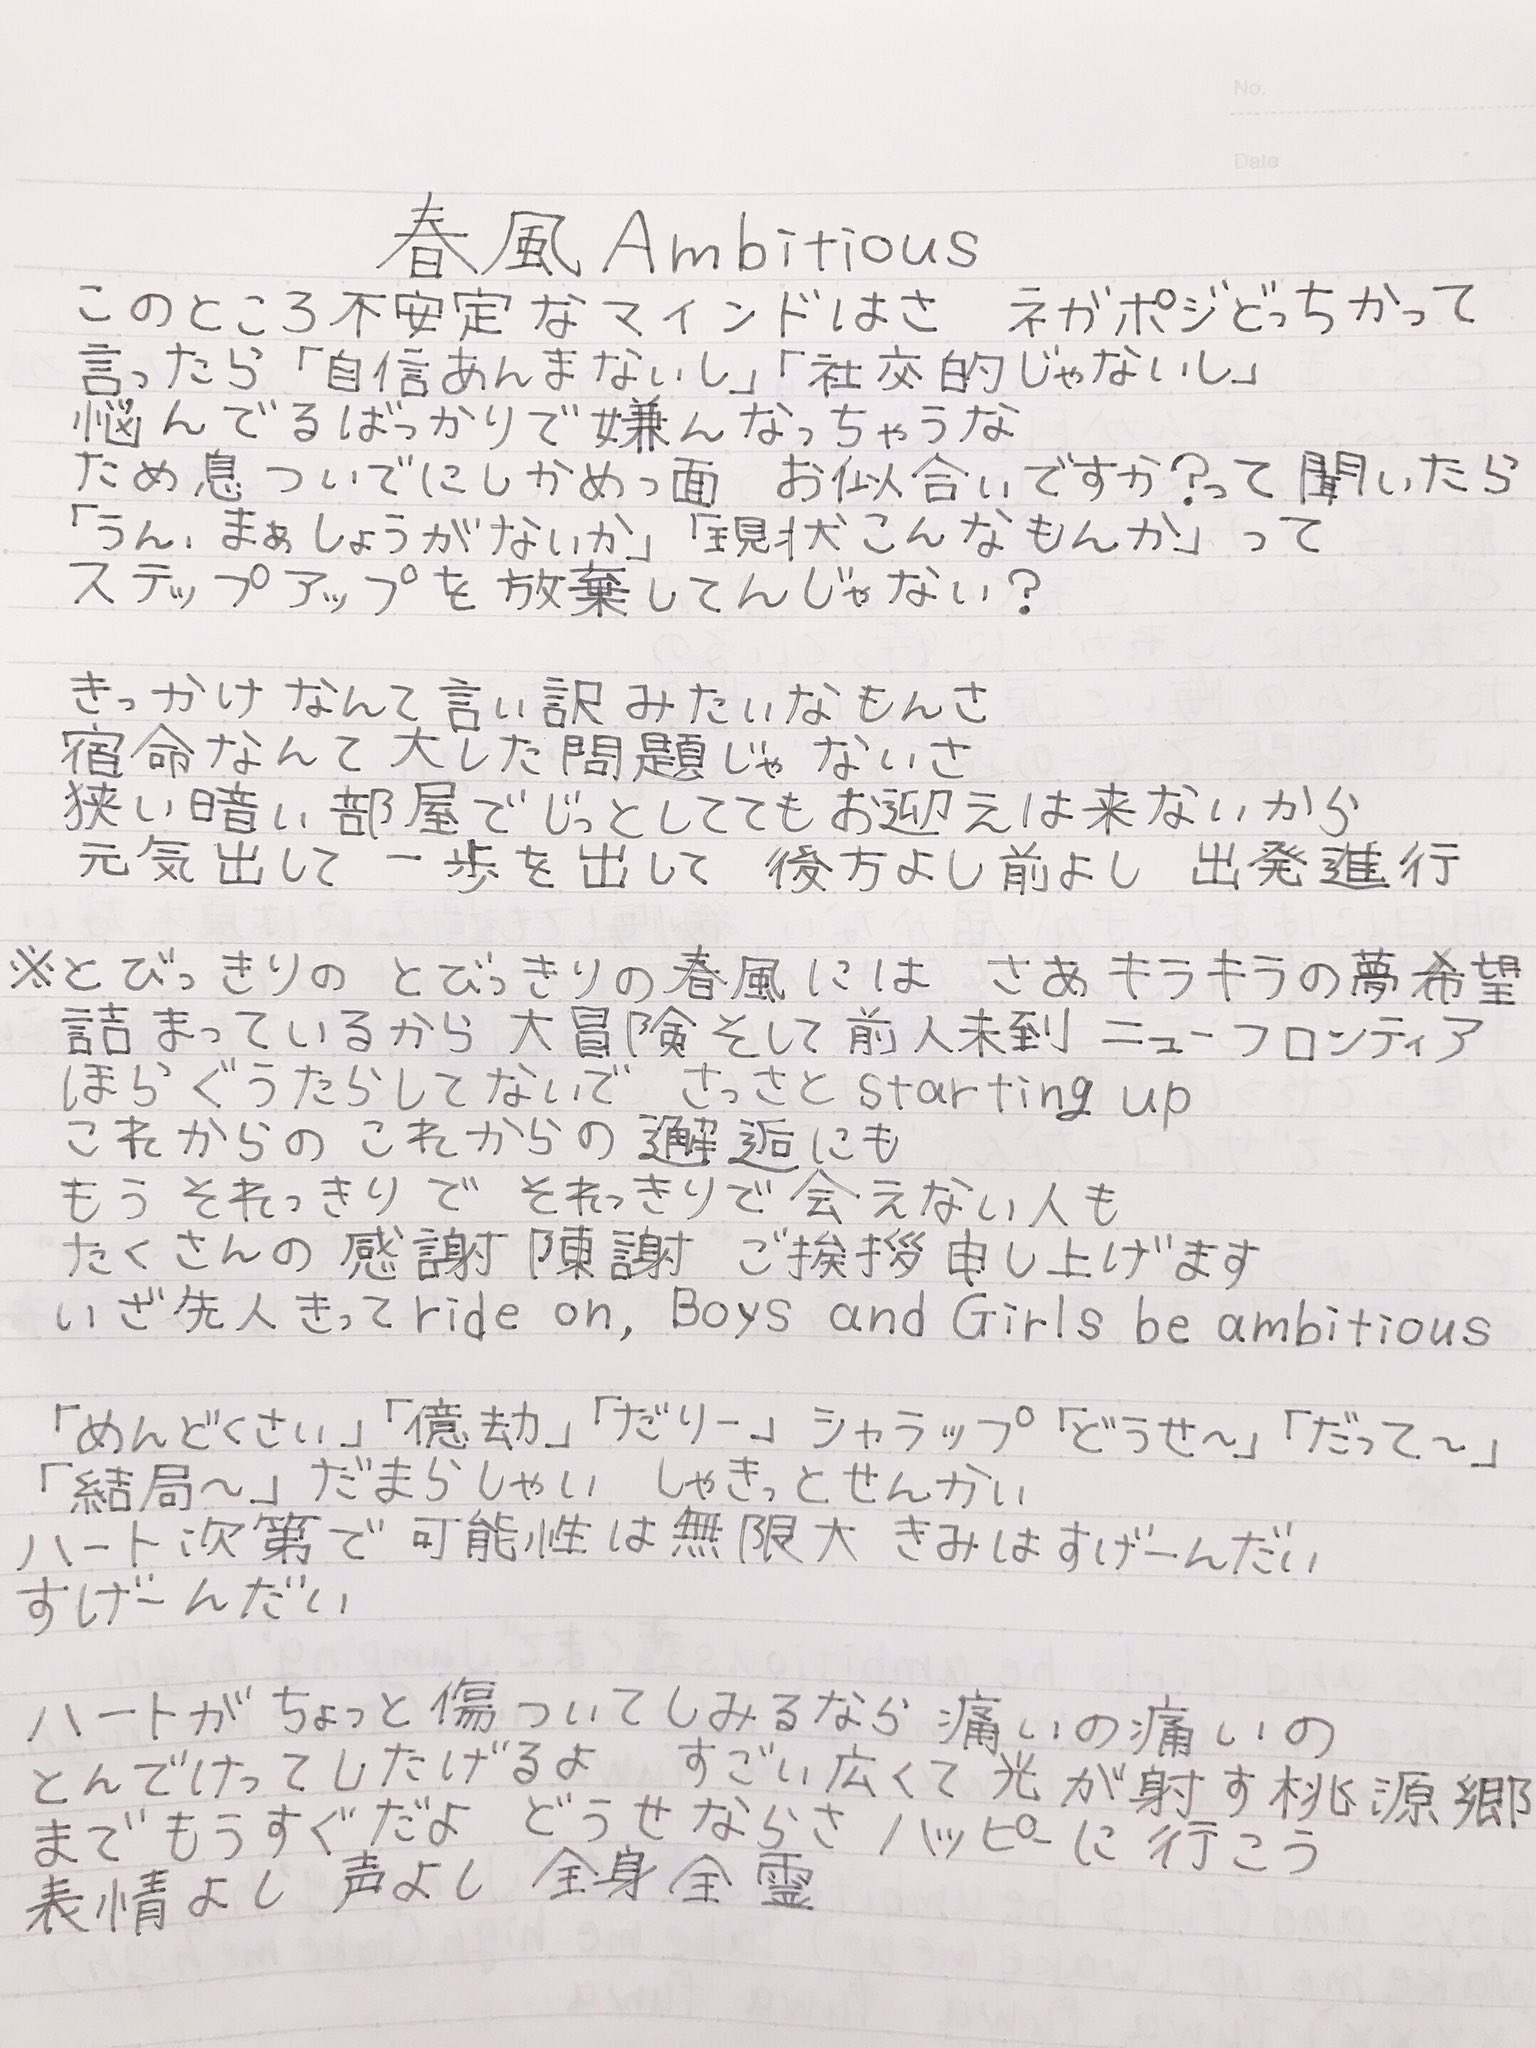 No.
Date
春風 Ambitious
このところ不安定なマインドはさ　ネガポジどっちかって
言ったら「自信あんまないし」「社交的じゃないし」
悩んでるばっかりで嫌んなっちゃうな
ため息ついでにしかめっ面　お似合いですか?って聞いたら
「うん、まぁしょうがないか」「現状こんなもんか」って
ステップアップを放棄してんじゃない?
きっかけなんて言い訳みたいなもんさ
宿命なんて大した問題じゃないさ
狭い暗い部屋でじっとしててもお迎えは来ないから
元気出して　一歩を出して　後方よし前よし　出発進行
※とびっきりの　とびっきりの春風には　さあキラキラの夢希望
詰まっているから　大冒険そして前人未到　ニューフロンティア
ほらぐうたらしてないで　さっさと starting up
これからの これからの 邂逅にも
もう それっきりで それっきりで会えない人も
たくさんの 感謝 陳謝　ご挨拶申し上げます
いざ先人きって ride on, Boys and Girls be ambitious
「めんどくさい」「億劫」「だりー」シャラップ「どうせ〜」「だって〜」
「結局〜」だまらしゃい　しゃきっとせんかい
ハート次第で 可能性は無限大 きみはすげーんだい
すげーんだい
ハートがちょっと傷ついてしみるなら 痛いの痛いの
とんでけってしたげるよ　すごい広くて光が射す桃源郷
までもうすぐだよ　どうせならさ ハッピーに行こう
表情よし 声よし 全身全霊